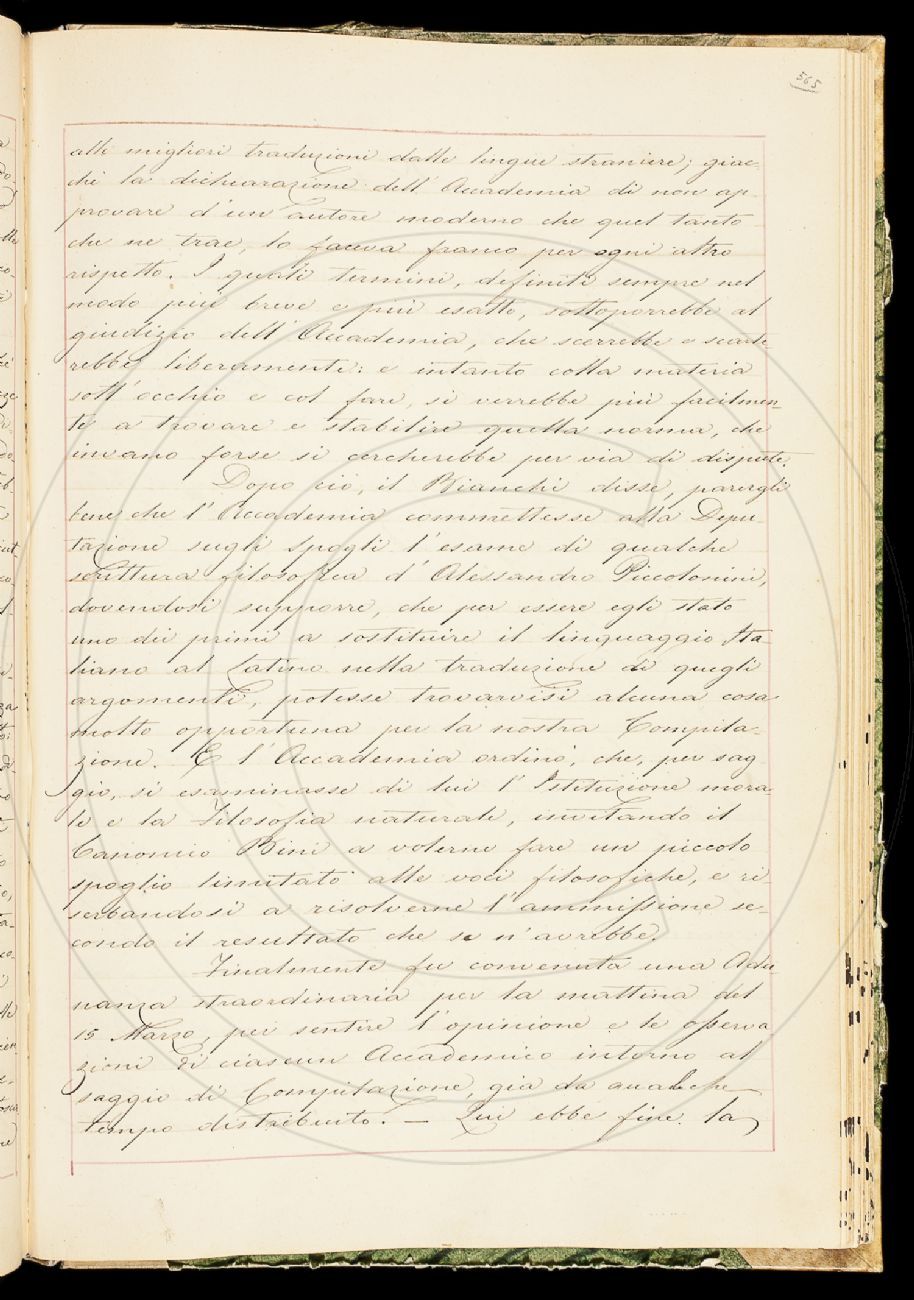 565
alle migliori traduzioni dalle lingue straniere; giac-
chè la dichiarazione dell'Accademia di non ap-
provare d'un autore moderno che quel tanto
che ne trae, lo faceva franco per ogni altro
rispetto. I quali termini, definiti sempre nel
modo più breve e più esatto, sottoporrebbe al
giudizio dell'Accademia, che scerrebbe e scarte-
rebbe liberamente: e intanto colla materia
sott'occhio e col fare, si verrebbe più facilmen-
te a trovare e stabilire quella norma, che
invano forse si cercherebbe per via di dispute.
Dopo ciò, il Bianchi disse, parergli
bene che l'Accademia commettesse alla Depu-
tazione sugli spogli l'esame di qualche
scrittura filosofica d'Alessandro Piccolomini,
dovendosi supporre, che per essere egli stato
uno dei primi a sostituire il linguaggio Ita-
liano al Latino nella traduzione di quegli
argomenti, potesse trovarvisi alcuna cosa
molto opportuna per la nostra Compila-
zione. E l'Accademia ordinò, che, per sag-
gio, si esaminasse di lui l'Istituzione mora-
le e la Filosofia naturale, invitando il
Canonico Bini a volerne fare un piccolo
spoglio limitato alle voci filosofiche, e ri-
serbandosi a risolverne l'ammissione se-
condo il resultato che se n'avrebbe.
Finalmente fu convenuta una Adu-
nanza straordinaria per la mattina del
15 Marzo, per sentire l'opinione e le osserva-
zioni di ciascun Accademico intorno al
saggio di Compilazione, già da qualche
tempo distribuito. — Qui ebbe fine la